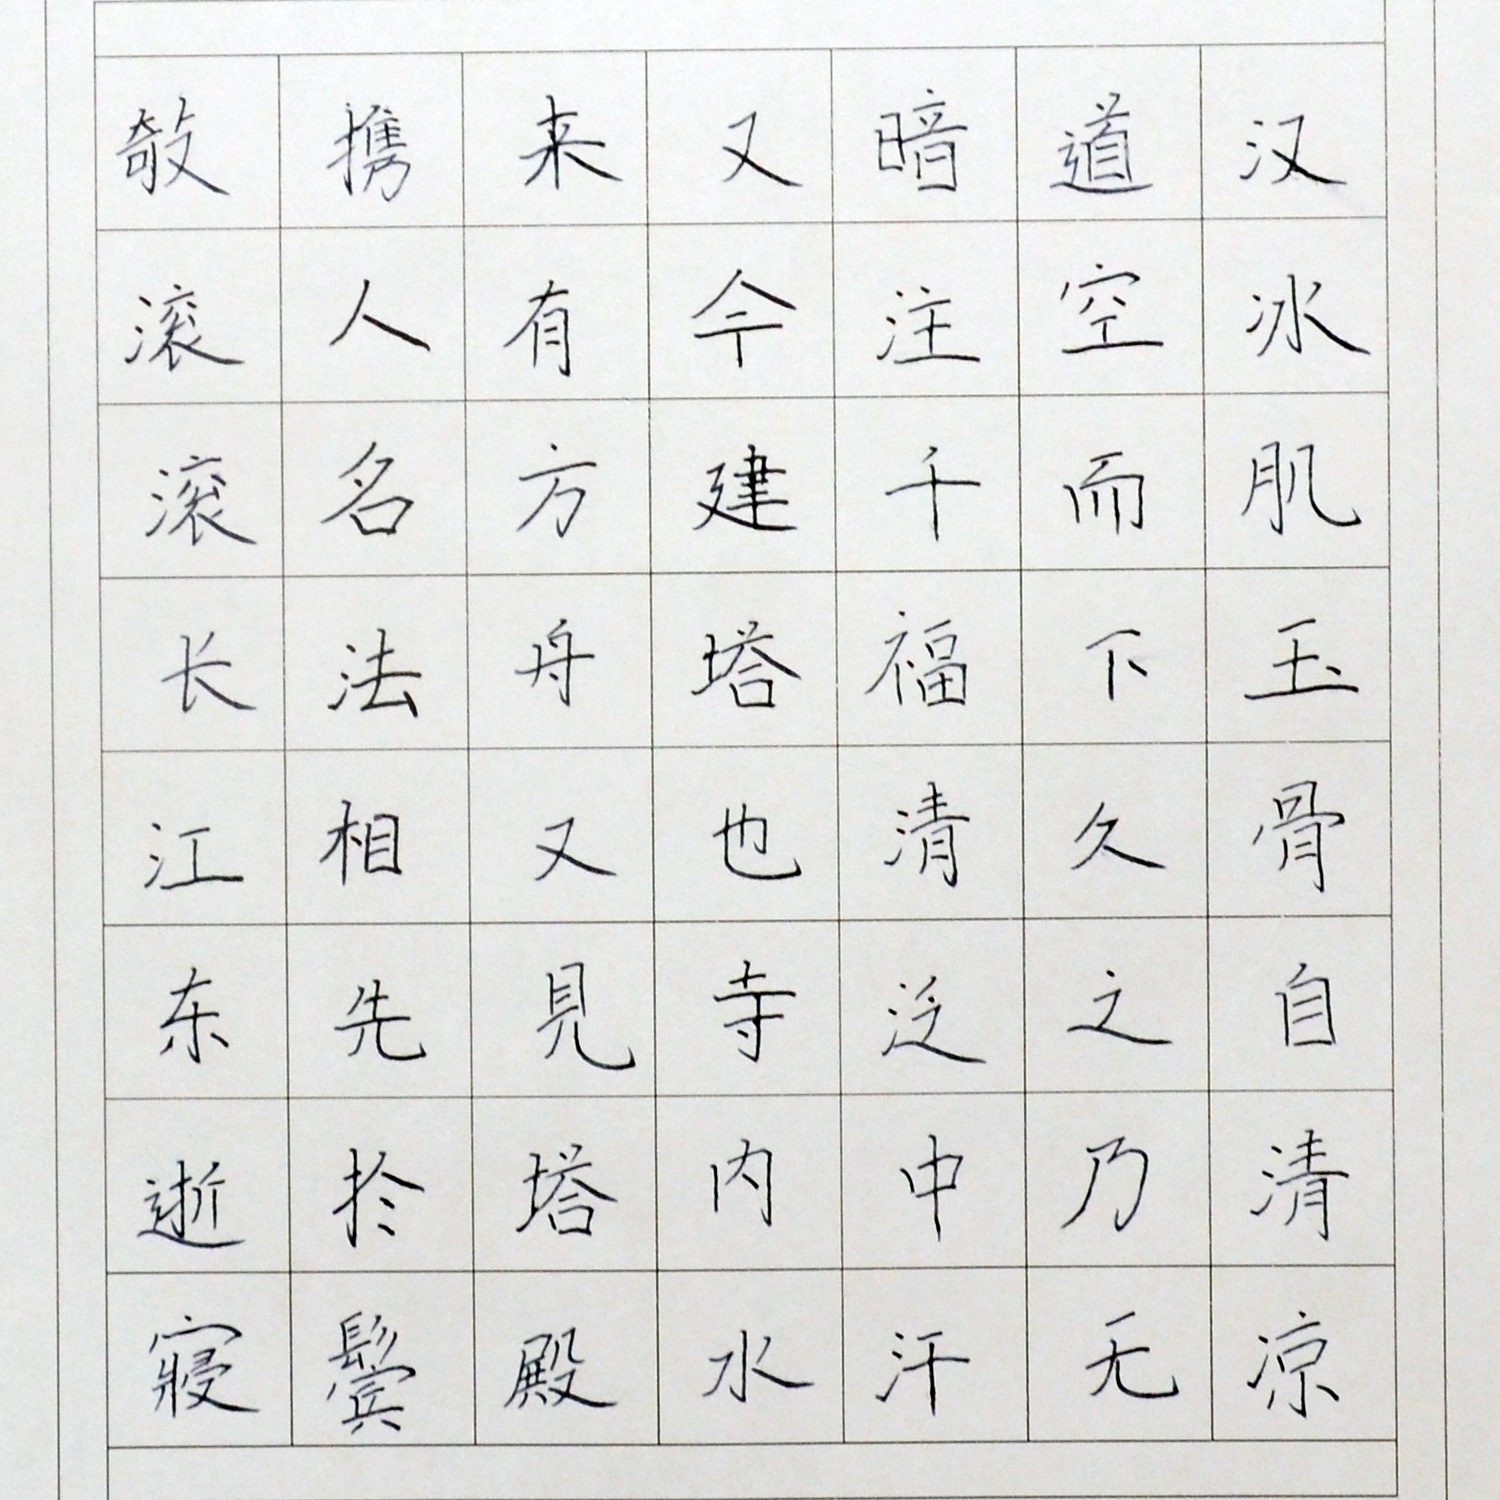 汉冰肌玉骨自清凉
道空而下久之乃无
暗注千福清泛中汗
又今建塔也寺内水
来有方舟又見塔殿
携人名法相先扵鬓
敧滚滚长江东逝寢